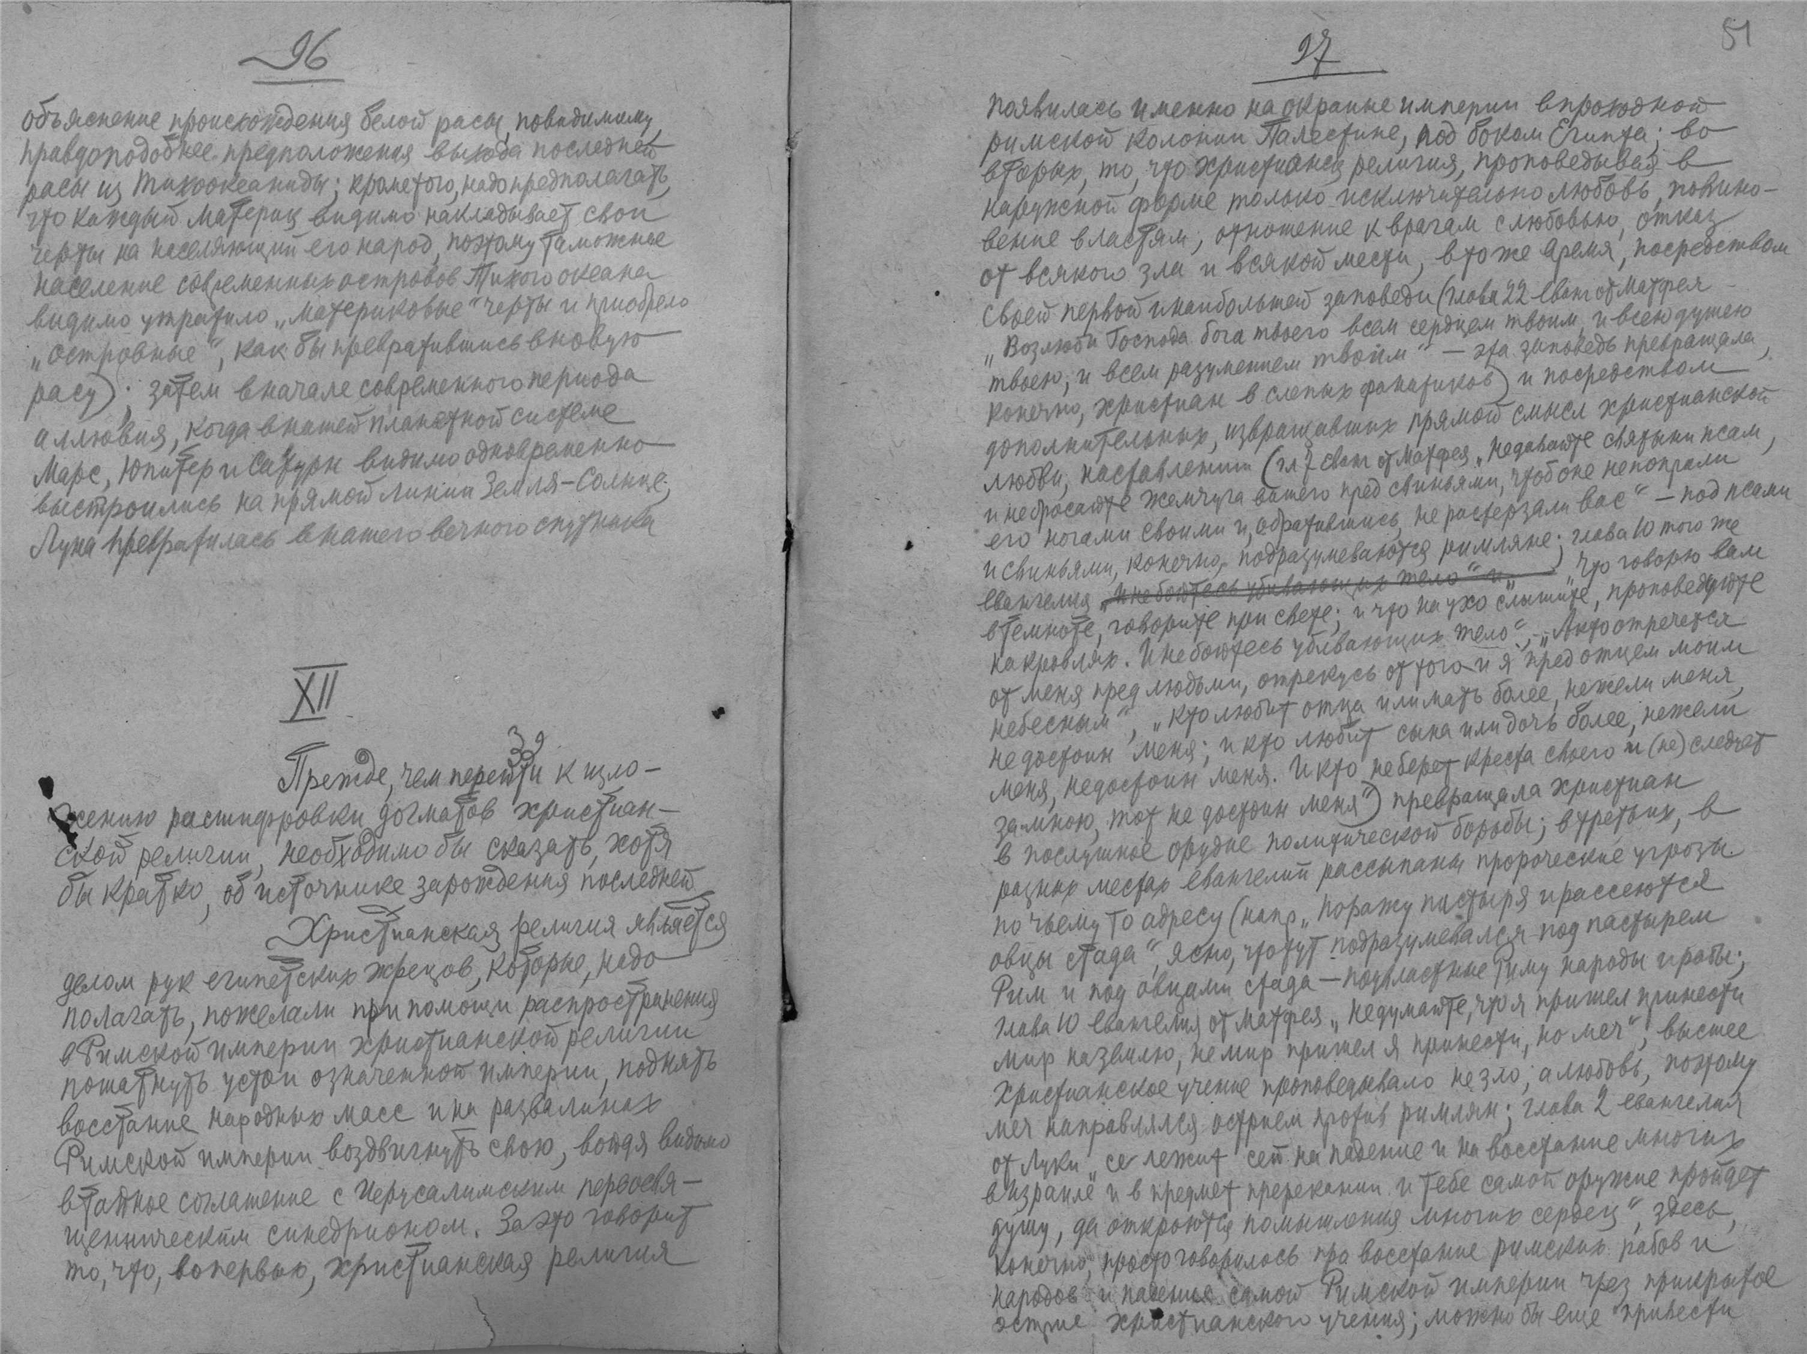 96
объяснение происхождения белой расы, повидимому,
правдоподобнее предположения выхода последней
расы из Тихоокеаниды; кроме того, надо предполагать,
что каждый материк видимо накладывает свои
черты на населяющий его народ, поэтому таможнее
население современных островов Тихого океана
видимо утратило „материковые“ черты и приобрело
„островные“, как бы превратившись в новую
расу); затем в начале современного периода
аллювия, когда в нашей планетной системе
Марс, Юпитер и Сатурн видимо одновременно
выстроились на прямой линии Земля–Солнце;
Луна превратилась в нашего вечного спутника
XII
39
Прежде, чем перейти к изло-
жению расшифровки догматов христиан-
ской религии, необходимо бы сказать, хотя
бы кратко, об источнике зарождения последней
Христианская религия является
делом рук египетских жрецов, которые, надо
полагать, пожелали при помощи распространения
в Римской империи христианской религии
пошатнуть устои означенной империи, поднять
восстание народных масс и на развалинах
Римской империи воздвигнуть свою, войдя видимо
в тайное соглашение с Иерусалимским первосвя-
щенническим синедрионом. За это говорит
то, что, вопервых, христианская религия
97
51
появилась именно на окраине империи в проходной
римской колонии Палестине, под боком Египта; во
вторых, то, что христианск религия, проповедывая в
наружной форме только исключительно любовь, повино-
вение властям, отношение к врагам с любовью, отказ
от всякого зла и всякой мести, в то же время, посредством
своей первой и наибольшей заповеди (глава 22 еванг от Матфея
„Возлюби Господа бога твоего всем сердцем твоим, и всею душею
твоею, и всем разумением твоим“ – эта заповедь превращала,
конечно, христиан в слепых фанатиков) и посредством
дополнительных, извращавших прямой смысл христианской
любви, наставлений (гл 7 еванг от Матфея „Не давайте святыни псам,
и не бросайте жемчуга вашего пред свиньями, чтоб оне не попрали
его ногами своими и, обратившись, не растерзали вас“ – под псами
и свиньями, конечно, подразумеваются римляне; глава 10 того же
евангелия „и не бойтесь убивающих тело“ и „Что говорю вам
в темноте, говорите при свете; и что на ухо слышите, проповедуйте
на кровлях. И не бойтесь убивающих тело“, „А кто отречется
от меня пред людьми, отрекусь от того и я пред отцем моим
небесным“, „кто любит отца или мать более, нежели меня,
недостоин меня; и кто любит сына или дочь более, нежели
меня, недостоин меня. И кто не берет креста своего и (не) следует
за мною, тот не достоин меня“) превращала христиан
в послушное орудие политической борьбы; в третьих, в
разных местах евангелий рассыпаны пророческие угрозы
по чьему то адресу (напр „поражу пастыря и рассеются
овцы стада“, ясно, что тут подразумевался под пастырем
Рим и под овцами стада – подвластные Риму народы и рабы;
глава 10 евангелия от Матфея „не думайте, что я пришел принести
мир на землю, не мир пришел я принести, но меч“, высшее
Христианское учение проповедывало не зло, а любовь, поэтому
меч направлялся острием против римлян; глава 2 евангелия
от Луки „се лежит сей на падение и на восстание многих
в Израиле и в предмет пререканий и тебе самой оружие пройдет
душу, да откроются помышления многих сердец“, здесь,
конечно, просто говорилось про восстание римских рабов и
народов и падение самой Римской империи чрез прикрытое
острие христианского учения; можно бы еще привести